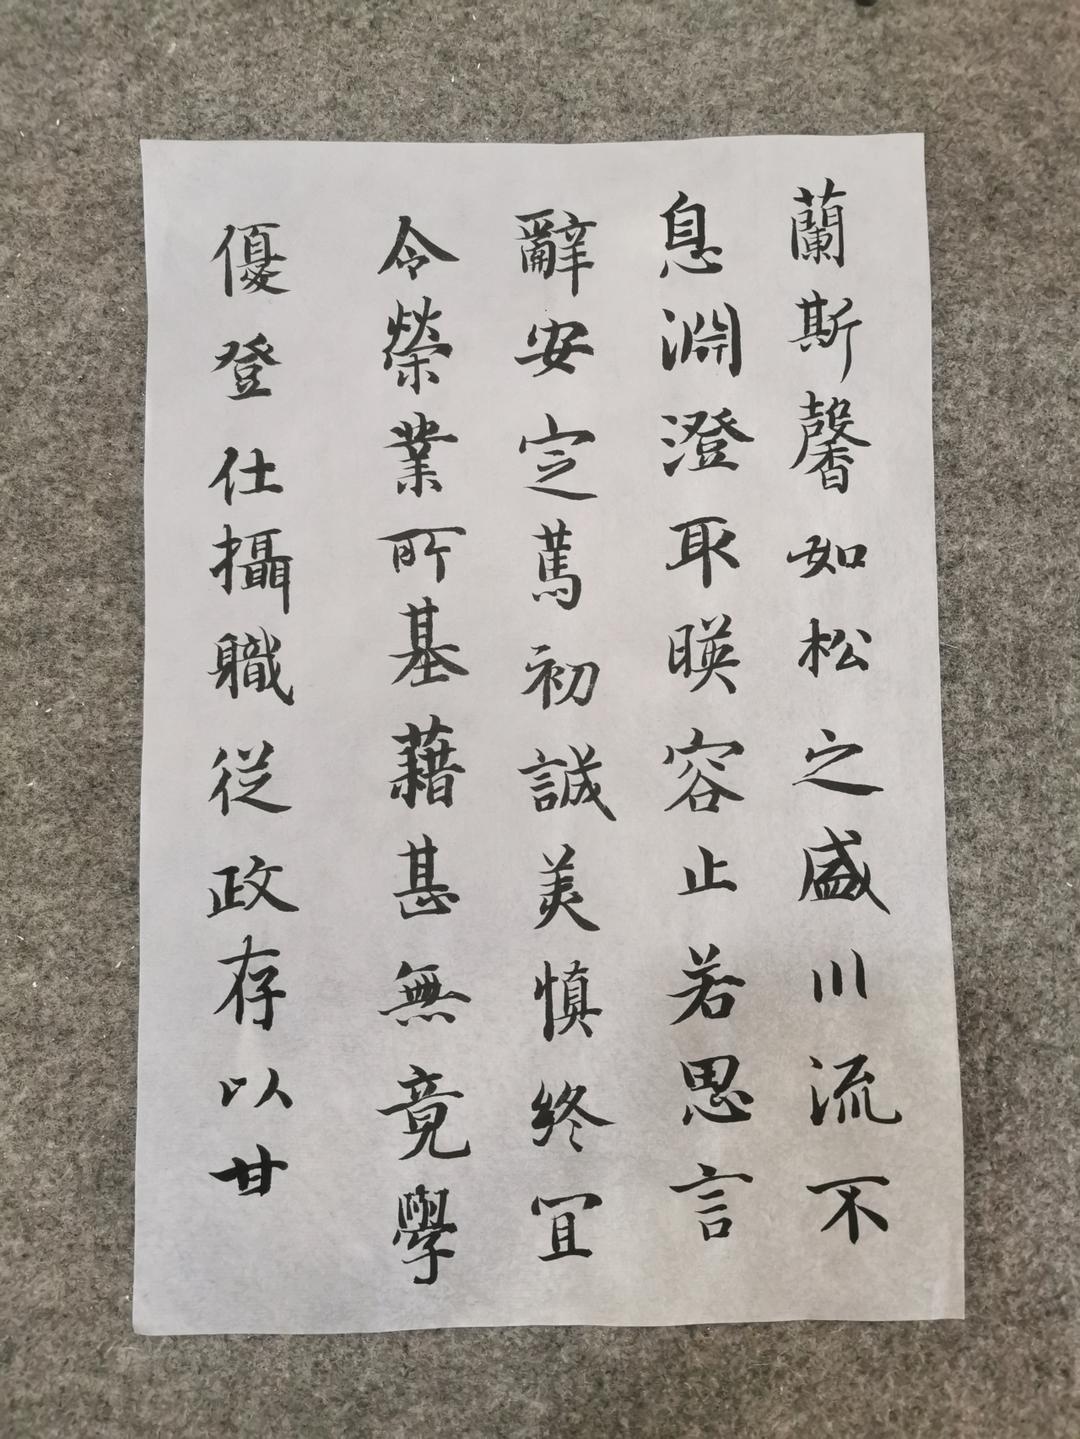 蘭斯馨如松之盛川流不
息淵澄取暎容止若思言
辭安定篤初誠美慎終宜
令榮業所基藉甚無竟學
優登仕攝職從政存以甘